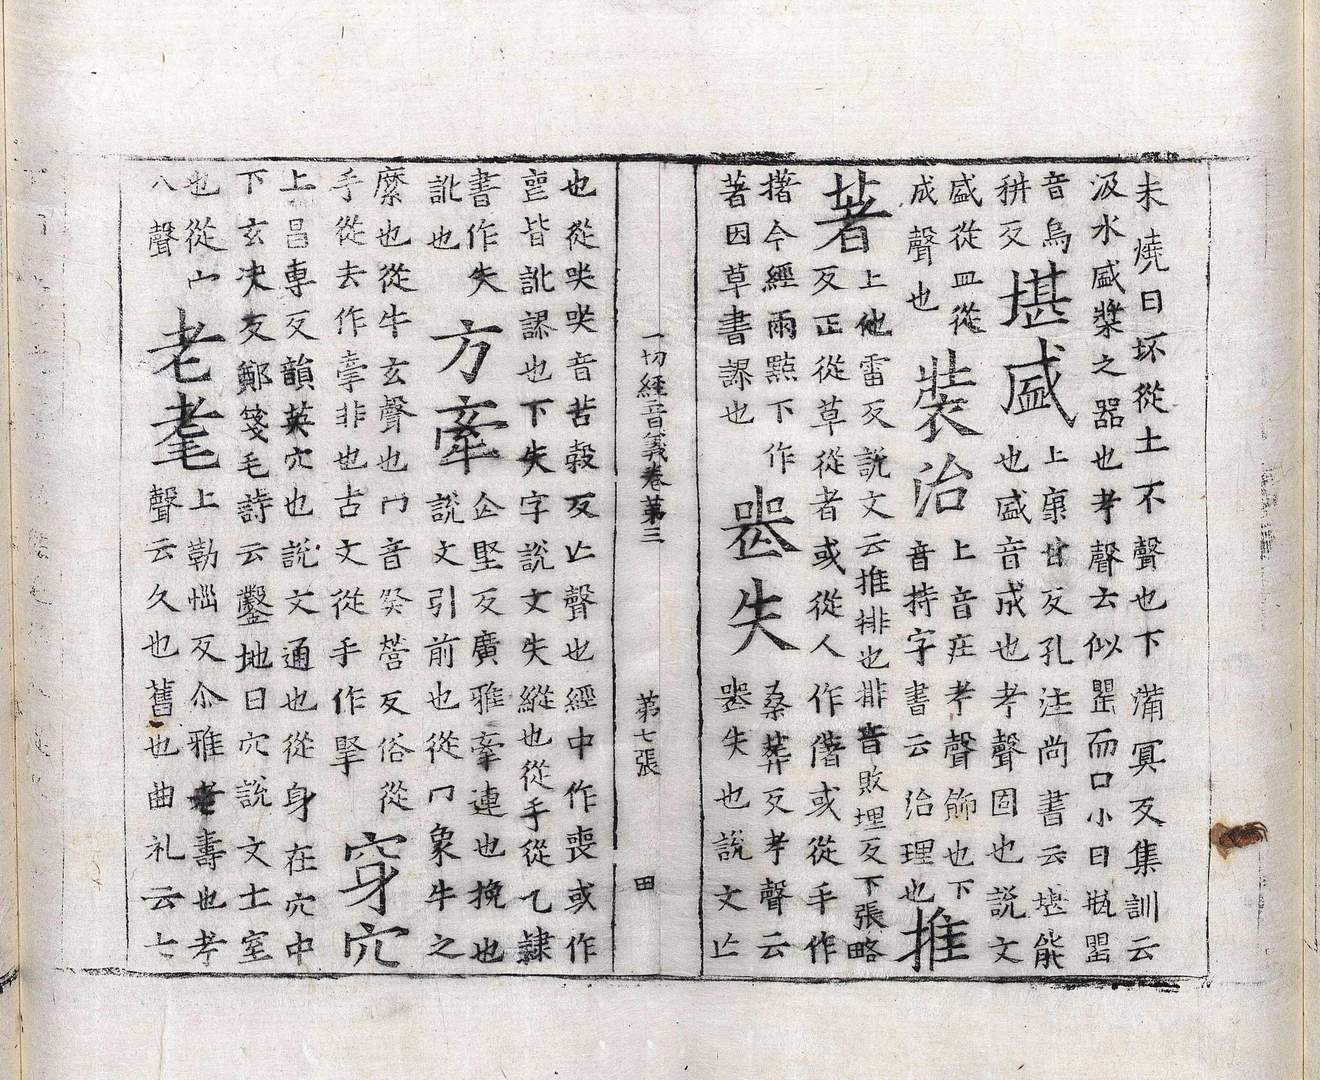 未燒曰坏從土不聲也下蒲冥反集訓云
汲水盛漿之器也考聲云似罌而口小曰瓶罌
音烏
耕反
堪盛
上康甘反孔注尚書云堪能
也盛音成也考聲固也說文
盛從皿從
成聲也
裝治
上音莊考聲飾也下
音持字書云治理也
推
著
上他雷反說文云推排也排音敗埋反下張略
反正從草從者或從人作偖或從手作
撯今經雨點下作
著因草書謬也
喪失
桑葬反考聲云
喪失也說文亾
一切經音義卷第三 第七張 田
也從哭哭音苦穀反亾聲也經中作喪或作
皆訛謬也下失字說文失縱也從手從乙隸
書作失
訛也
方牽
企堅反廣雅牽連也挽也
說文引前也從冂象牛之
縻也從牛玄聲也冂音癸營反俗從
手從去作非也古文從手作掔
穿穴
上昌專反韻英穴也說文通也從身在穴中
下玄決反鄭箋毛詩云鑿地曰穴說文土室
也從宀
八聲
老耄
上勒惱反尒雅老壽也考
聲云久也舊也曲礼云七